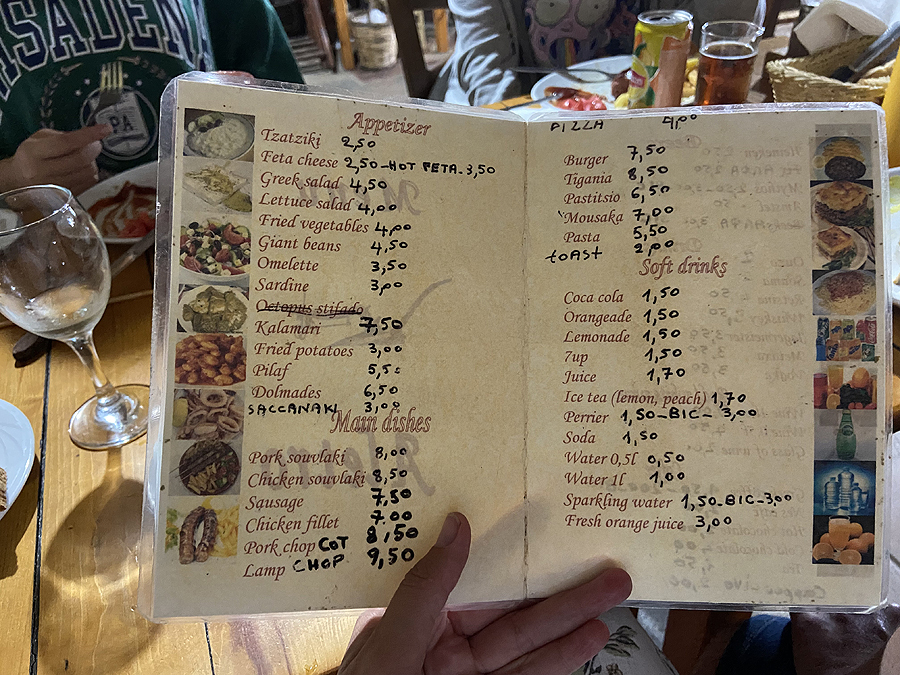 PASADENA
PA
Appetizer
Tzatziki 2,50
Feta cheese 2,50-HOT FETA-3,50
Greek salad 4,50
Lettuce salad 4,00
Fried vegetables 4,00
Giant beans 4,50
Omelette 3,50
Sardine 3,00
Octopus stifado
Kalamari 7,50
Fried potatoes 3,00
Pilaf 5,50
Dolmades 6,50
SACCANAKI 3,00
Main dishes
Pork souvlaki 8,00
Chicken souvlaki 8,50
Sausage 7,50
Chicken fillet 7.00
Pork chop COT 8,50
Lamp CHOP 9,50
PIZZA 4,00
Burger 7,50
Tigania 8,50
Pastitsio 6,50
Mousaka 7,00
Pasta 5,50
tOASt 2,00
Soft drinks
Coca cola 1,50
Orangeade 1,50
Lemonade 1,50
7up 1,50
Juice 1,70
Ice tea (lemon, peach) 1,70
Perrier 1,50-BIC- 3,00
Soda 1,50
Water 0,5l 0,50
Water 1l 1,00
Sparkling water 1,50-BIC-3,00
Fresh orange juice 3,00